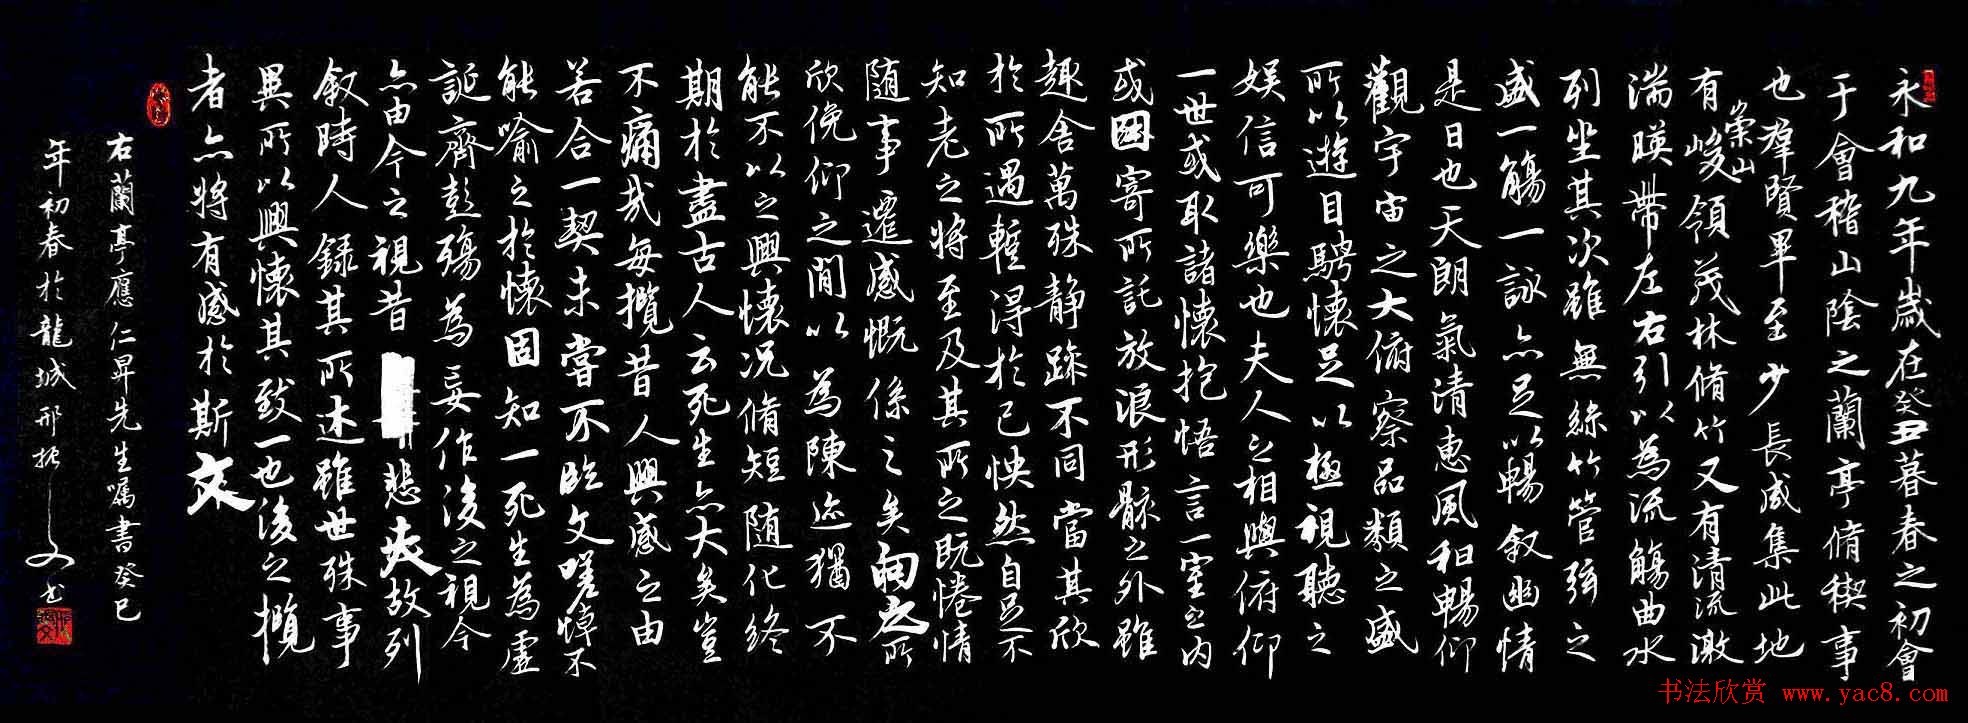 永和九年歲在癸丑暮春之初會
于會稽山陰之蘭亭脩稧事
也羣賢畢至少長咸集此地
有崇山峻領茂林脩竹又有清流激
湍暎帶左右引以為流觴曲水
列坐其次雖無絲竹管弦之
盛一觴一詠亦足以暢叙幽情
是日也天朗氣清惠風和暢仰
觀宇宙之大俯察品類之盛
所以遊目騁懷足以極視聽之
娛信可樂也夫人之相與俯仰
一世或取諸懷抱悟言一室之內
或因寄所託放浪形骸之外雖
趣舍萬殊静躁不同當其欣
於所遇暫得於己怏然自足不
知老之將至及其所之既惓情
随事遷感慨係之矣向之所
欣俛仰之閒以為陳迹猶不
能不以之興懷況脩短随化終
期於盡古人云死生亦大矣豈
不痛哉每攬昔人興感之由
若合一契未嘗不臨文嗟悼不
能喻之於懷固知一死生為虛
誕齊彭殤為妄作後之視今
亦由今之視昔悲夫故列
叙時人錄其所述雖世殊事
異所以興懷其致一也後之攬
者亦將有感於斯文
右蘭亭應仁昇先生嘱書癸巳
年初春於龍城邢振
书法欣赏 www.yac8.com